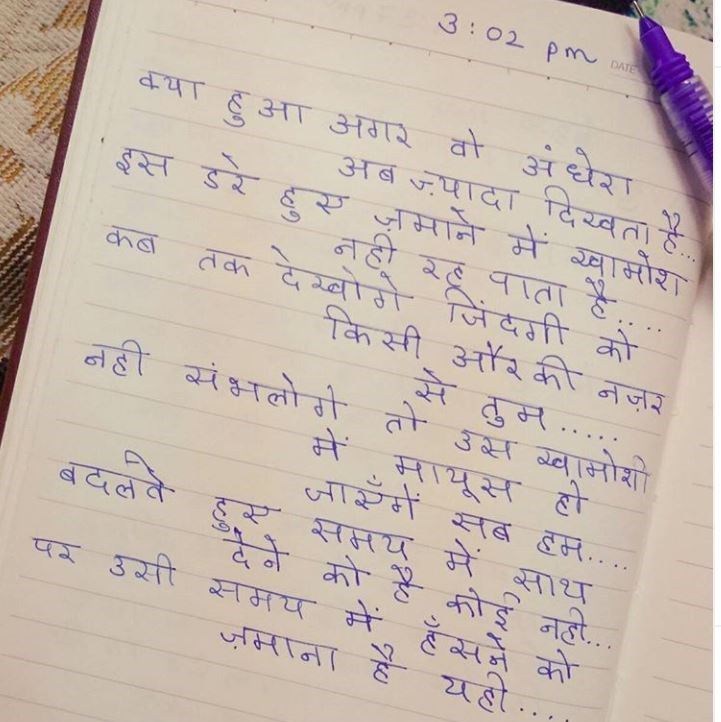 3:02 pm
DATE
क्या हुआ अगर वो अंधेरा
अब ज़्यादा दिखता है...
इस डरे हुए ज़माने में खामोश
नही रह पाता है....
कब तक देखोगे जिंदगी को
किसी और की नज़र
से तुम.....
नही संभलोगे तो उस खामोशी
में मायूस हो
जाएँगें सब हम....
बदलते हुए समय में साथ
देने को है कोई नही...
पर उसी समय में हँसने को
ज़माना है यही....